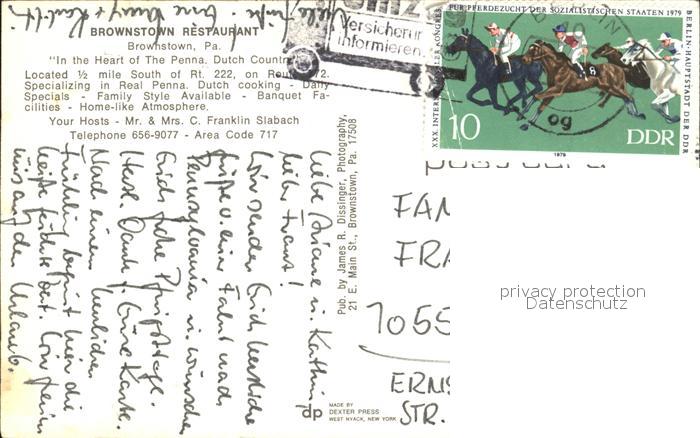 Viele Grüße. Eure
BROWNSTOWN RESTAURANT
Brownstown, Pa.
"In the Heart of The Penna. Dutch Country
Located ½ mile South of Rt. 222, on Route 72.
Specializing in Real Penna. Dutch cooking - Daily
Specials - Family Style Available - Banquet Fa-
cilities - Home-like Atmosphere.
Your Hosts - Mr. & Mrs. C. Franklin Slabach
Telephone 656-9077 - Area Code 717
Liebe Ariane u. Kathrin,
lieber Franz!
Wir senden Euch herzliche
Grüße v. einer Fahrt nach
Pennsylvania u. wünschen
Euch frohe Pfingsttage.
Herzl. Dank f. Eure Karte.
Nach einem herrlichen
Frühling beginnt hier die
heiße
uns auf den Urlaub.
Pub. by James R. Dissinger, Photography,
21 E. Main St., Brownstown, Pa. 17508
dp
MADE BY
DEXTER PRESS
WEST NYACK, NEW YORK
Versichern
informieren
FÜR PFERDEZUCHT DER SOZIALISTISCHEN STAATEN 1979
BERLIN-HAUPTSTADT DER DDR
XXX. INTERNATIONALER KONGRESS
8
10
DDR
1979
og
post card
FAM
FRA
1055
ERNS
STR.
privacy protection
Datenschutz